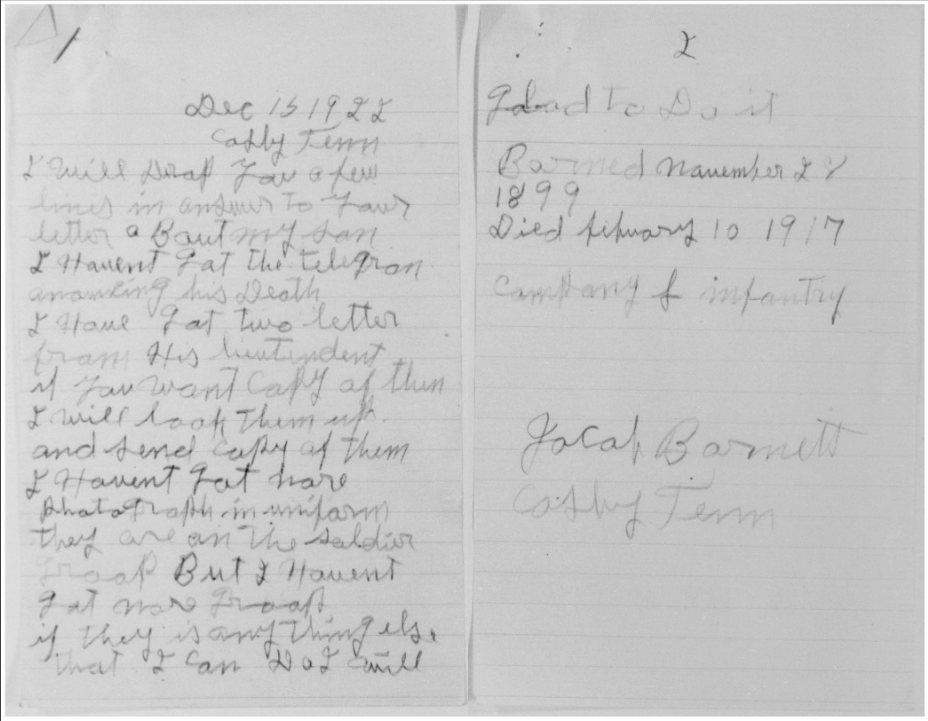 1
Dec 15 1922
Cosby Tenn
I Will Drop You a few
lines in answer to Your
letter a Bout my son
I Havent got the telegran
anouncing his Death
I Have got two letter
from His lieutendent
if You want Copy of them
I will look them up
and send copy of them
I Havent got nare
photograph in uniform
they are on the soldier
groop But I Havent
got nare groop
if they is any thing els.
that I can Do I will
2
glad to Do it
Borned November 2
1899
Died febuary 10 1917
Company f infantry
Jacob Barnett
Cosby Tenn